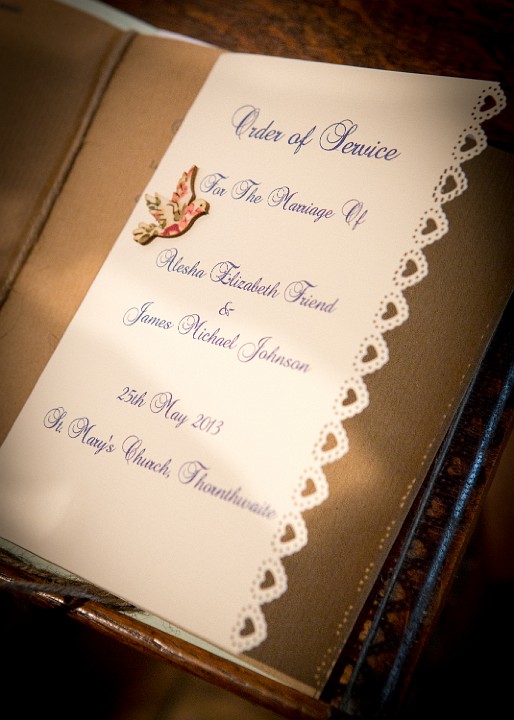 Order of Service
For The Marriage Of
Alesha Elizabeth Friend
&
James Michael Johnson
25th May 2013
St. Mary's Church, Thornthwaite